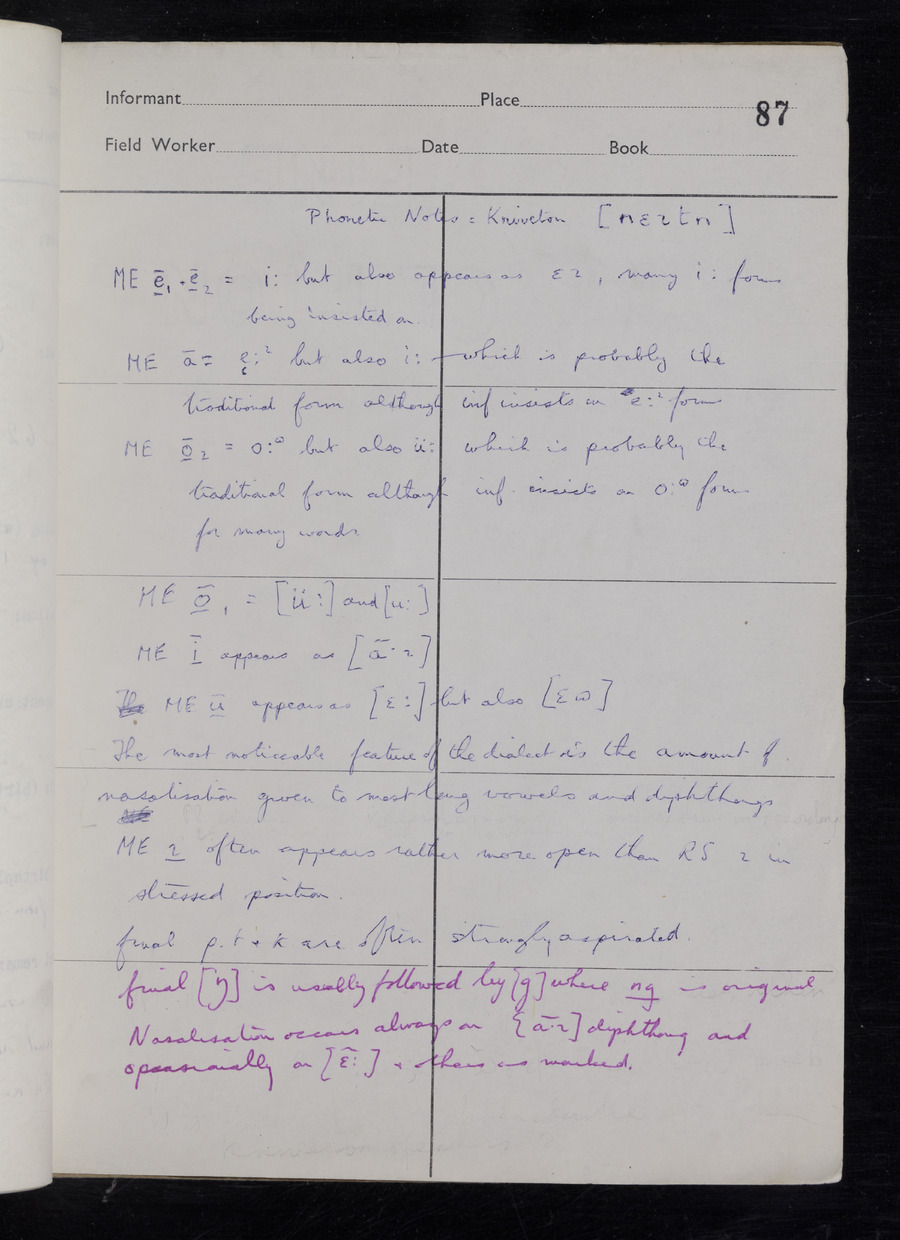 Informant Place
87
Field Worker Date Book
Phonetic Notes : Kniveton [nɛɪtn]
ME ē̱₁ + ē̱₂ = i: but also appears as ɛɪ, many i: forms
being insisted on.
ME ā = ẹ:ᶦ but also i: – which is probably the
traditional form although inf insists on e:ᶦ forms
ME ō̱₂ = o:ᶷ but also ü: which is probably the
traditional form although inf. insists on o:ᶷ forms
for many words.
ME ō̱₁ = [ü:] and [u:]
ME ī̱ appears as [ã·ɪ]
ME ū̱ appears as [ɛ:] but also [ɛɷ]
The most noticeable feature of the dialect is the amount of
nasalisation given to most long vowels and diphthongs
ME ɪ̱ often appears rather more open than RS ɪ in
stressed position.
final p. t + k are often strongly aspirated.
final [ŋ] is usually followed by [g] where ng is original
Nasalisation occurs always on [ã·ɪ] diphthong and
occasionally on [ɛ̃:] + others as marked.